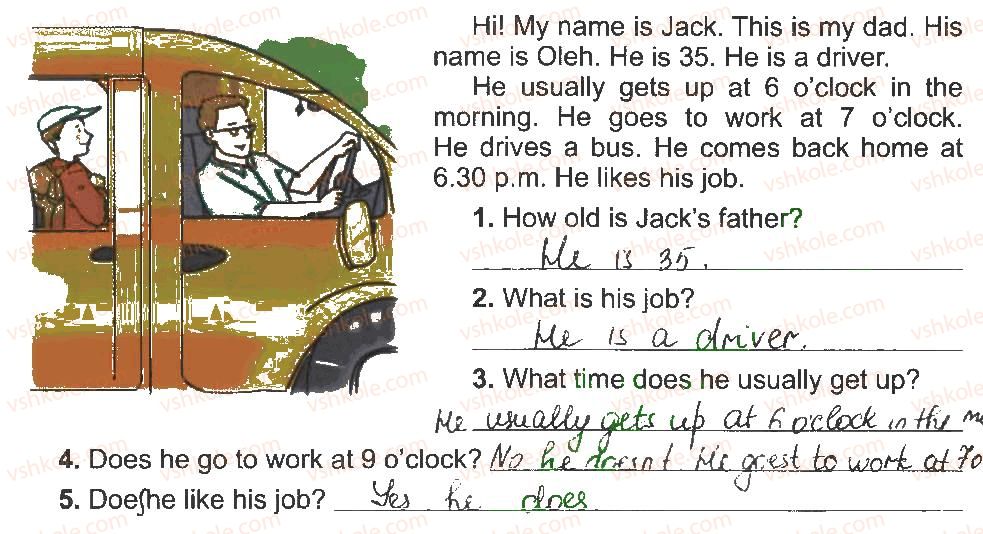 Hi! My name is Jack. This is my dad. His
name is Oleh. He is 35. He is a driver.
He usually gets up at 6 o'clock in the
morning. He goes to work at 7 o'clock.
He drives a bus. He comes back home at
6.30 p.m. He likes his job.
1. How old is Jack's father?
He is 35.
2. What is his job?
He is a driver.
3. What time does he usually get up?
He usually gets up at 6 o'clock in the
4. Does he go to work at 9 o'clock? No he doesnt He goest to work at 7o
5. Does he like his job? Yes he does